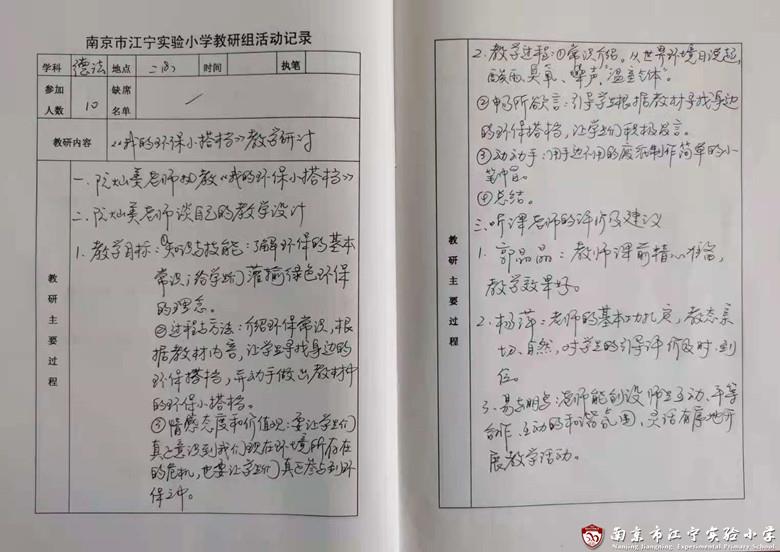 南京市江宁实验小学教研组活动记录
学科 德法 地点 二(3) 时间 执笔
参加人数 10 缺席名单 /
教研内容 《我的环保小搭档》教学研讨
教研主要过程
一、阮灿美老师执教《我的环保小搭档》
二、阮灿美老师谈自己的教学设计
1. 教学目标:①知识与技能:了解环保的基本
常识;给学生们灌输绿色环保
的理念。
②过程与方法:介绍环保常识,根
据教材内容,让学生寻找身边的
环保搭档,并动手做出教材中
的环保小搭档。
③情感态度和价值观:要让学生们
真正意识到我们现在环境所存在
的危机,也要让学生们真正参与到环
保之中。
教研主要过程
2. 教学过程:①常识介绍。从世界环境日说起,
酸雨、臭氧、噪声、"温室气体"。
②畅所欲言:引导学生根据教材寻找身边
的环保搭档,让学生们积极发言。
③动动手:用手边不用的废纸制作简单的小
笔筒。
④总结。
三、听课老师的评价及建议
1. 郭晶晶:教师课前精心准备,
教学效果好。
2. 杨萍:老师的基本功扎实,教态亲
切、自然,对学生的引导评价及时、到
位。
3. 易明:老师能创设师生互动、平等
合作、互动的和谐氛围,灵活有序地开
展教学活动。
南京市江宁实验小学
Nanjing Jiangning Experimental Primary School